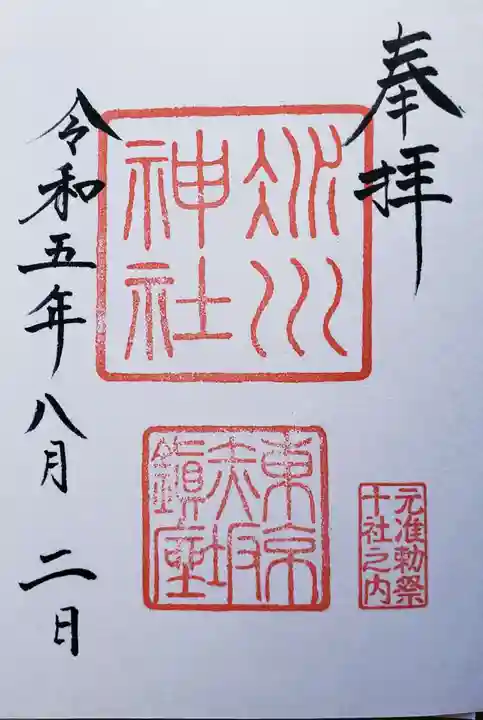 奉拝
氷川
神社
東京
赤坂
鎮座
元准勅祭
十社之内
令和五年八月二日